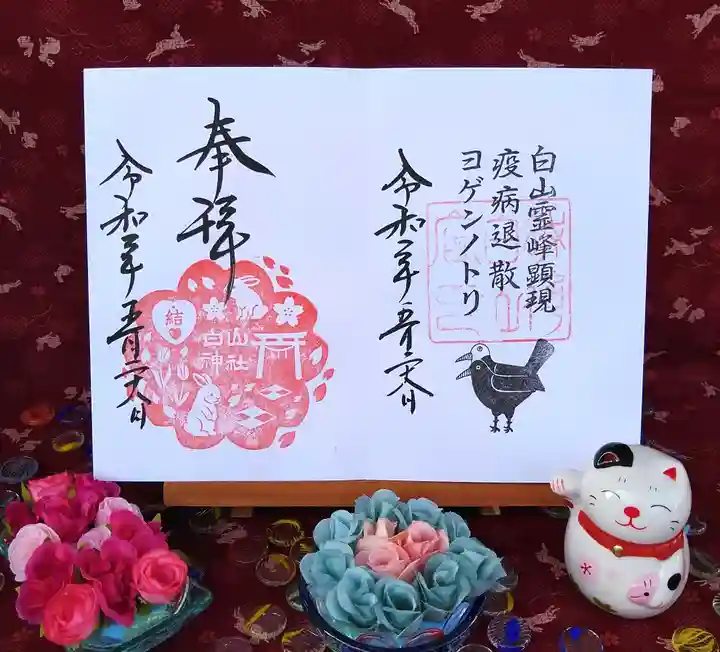 白山霊峰顕現
疫病退散
ヨゲンノトリ
令和二年五月二十八日
奉拝
結
白山
神社
令和二年五月二十八日